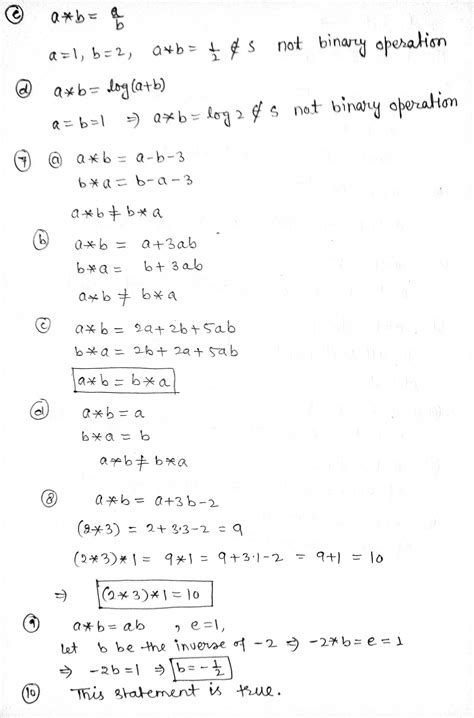 (c) a*b = a/b
a=1, b=2, a*b = 1/2 ∉ S not binary operation
(d) a*b = log(a+b)
a=b=1 ⇒ a*b = log 2 ∉ S not binary operation
(7) (a) a*b = a-b-3
b*a = b-a-3
a*b ≠ b*a
(b) a*b = a+3ab
b*a = b+3ab
a*b ≠ b*a
(c) a*b = 2a+2b+5ab
b*a = 2b+2a+5ab
a*b = b*a
(d) a*b = a
b*a = b
a*b ≠ b*a
(8) a*b = a+3b-2
(2*3) = 2+3·3-2 = 9
(2*3)*1 = 9*1 = 9+3·1-2 = 9+1 = 10
⇒ (2*3)*1 = 10
(9) a*b = ab , e=1,
let b be the inverse of -2 ⇒ -2*b = e = 1
⇒ -2b=1 ⇒ b = -1/2
(10) This statement is true.